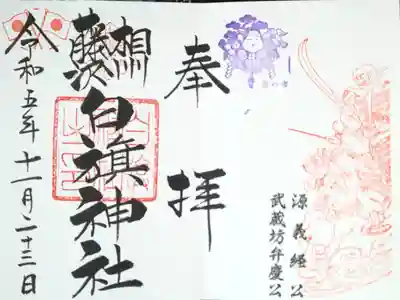 源義経公
武蔵坊弁慶公
奉拝
相州
藤沢
白旗神社
令和五年十一月二十三日